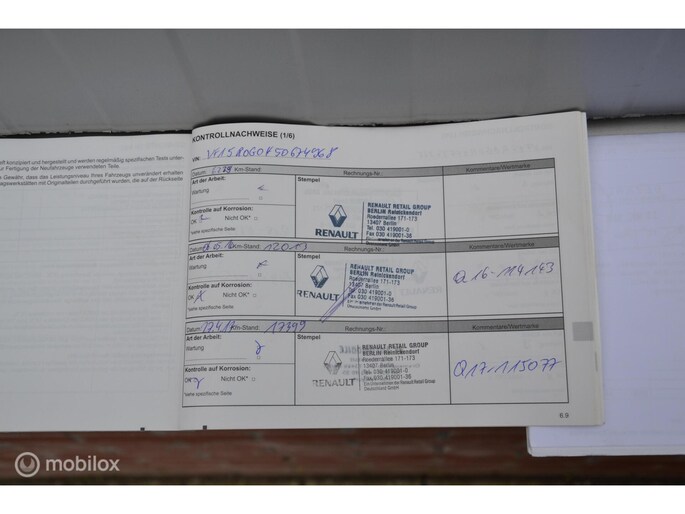 KONTROLLNACHWEISE (1/6)
VIN:
ft konzipiert und hergestellt und werden regelmäßig spezifischen Tests unter-
ur Fertigung der Neufahrzeuge verwendeten Teile.
e Gewähr, dass das Leistungsniveau Ihres Fahrzeugs unverändert erhalten
agswerkstätten mit Originalteilen durchgeführt wurden, die auf der Rückseite
Datum: Km-Stand: Rechnungs-Nr.: Kommentare/Wertmarke
Art der Arbeit: Stempel
Wartung
Kontrolle auf Korrosion:
OK Nicht OK* □
*siehe spezifische Seite
RENAULT
RENAULT RETAIL GROUP
BERLIN Reinickendorf
Roedernallee 171-173
13407 Berlin
Tel. 030 419001-0
Fax 030 419001-36
Datum: Km-Stand: 12013 Rechnungs-Nr.: Kommentare/Wertmarke
Art der Arbeit: Stempel
Wartung
Kontrolle auf Korrosion:
OK X Nicht OK* □
*siehe spezifische Seite
RENAULT
RENAULT RETAIL GROUP
BERLIN Reinickendorf
Roedernallee 171-173
13407 Berlin
Tel. 030 419001-0
Fax 030 419001-36
Q16-114143
Datum: Km-Stand: 17399 Rechnungs-Nr.: Kommentare/Wertmarke
Art der Arbeit: Stempel
Wartung
Kontrolle auf Korrosion:
OK* Nicht OK* □
*siehe spezifische Seite
RENAULT
RENAULT RETAIL GROUP
BERLIN Reinickendorf
Roedernallee 171-173
13407 Berlin
Tel. 030 419001-0
Fax 030 419001-36
Ein Unternehmen der Renault Retail Group
Deutschland GmbH
Q17-115077
6.9
mobilox